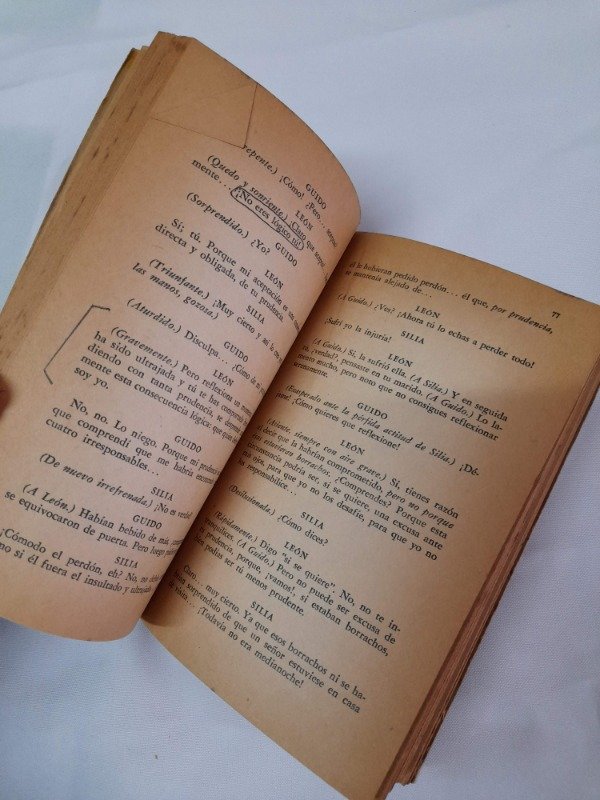 repente.) ¡Cómo! ¿Pero...
GUIDO
(Quedo y sonriente.) ¡Claro que
mente... ¡No eres lógico tú!
LEÓN
(Sorprendido.) ¿Yo?
GUIDO
LEÓN
Sí; tú. Porque mi aceptación es una
directa y obligada, de tu prudencia.
SILIA
(Triunfante.) ¡Muy cierto y
las manos, gozosa.)
GUIDO
(Aturdido.) Disculpa... ¿Cómo es
LEÓN
(Gravemente.) Pero reflexiona un momento
ha sido ultrajada y tú te has comportado
diendo con tanta prudencia, se
mente esta consecuencia lógica: que
soy yo.
GUIDO
No, no. Lo niego. Porque mi prudencia
que comprendí que me habría encontrado
cuatro irresponsables...
SILIA
(De nuevo irrefrenada.) ¡No es verdad!
GUIDO
(A León.) Habían bebido de más;
se equivocaron de puerta. Pero luego
SILIA
¡Cómodo el perdón, eh? No, no
no si él fuera el insultado y ultrajado
77
él le hubieran pedido perdón... él que, por prudencia,
se mantenía alejado de...
LEÓN
(A Guido.) ¿Ves? ¡Ahora tú lo echas a perder todo!
SILIA
¡Sufrí yo la injuria!
LEÓN
(A Guido.) Sí, la sufrió ella. (A Silia.) Y en seguida
¿verdad? pensaste en tu marido. (A Guido.) Lo la-
mento mucho, pero noto que no consigues reflexionar
serenamente.
GUIDO
(Exasperado ante la pérfida actitud de Silia.) ¡Dé-
jame! ¿Cómo quieres que reflexione!
LEÓN
(Asiente, siempre con aire grave.) Sí, tienes razón
al decir que la habrían comprometido, pero no porque
estuvieran borrachos. ¿Comprendes? Porque esta
circunstancia podría ser, si se quiere, una excusa ante
mis ojos, para que yo no los desafíe, para que yo no
los responsabilice...
SILIA
(Desilusionada.) ¿Cómo dices?
LEÓN
(Rápidamente.) Digo "si se quiere". No, no te in-
tranquilices. (A Guido.) Pero no puede ser excusa de
tu prudencia, porque, ¡vamos!, si estaban borrachos,
bien podías ser tú menos prudente.
SILIA
Claro... muy cierto. Ya que esos borrachos ni se ha-
brían sorprendido de que un señor estuviese en casa
de visita... ¡Todavía no era medianoche!